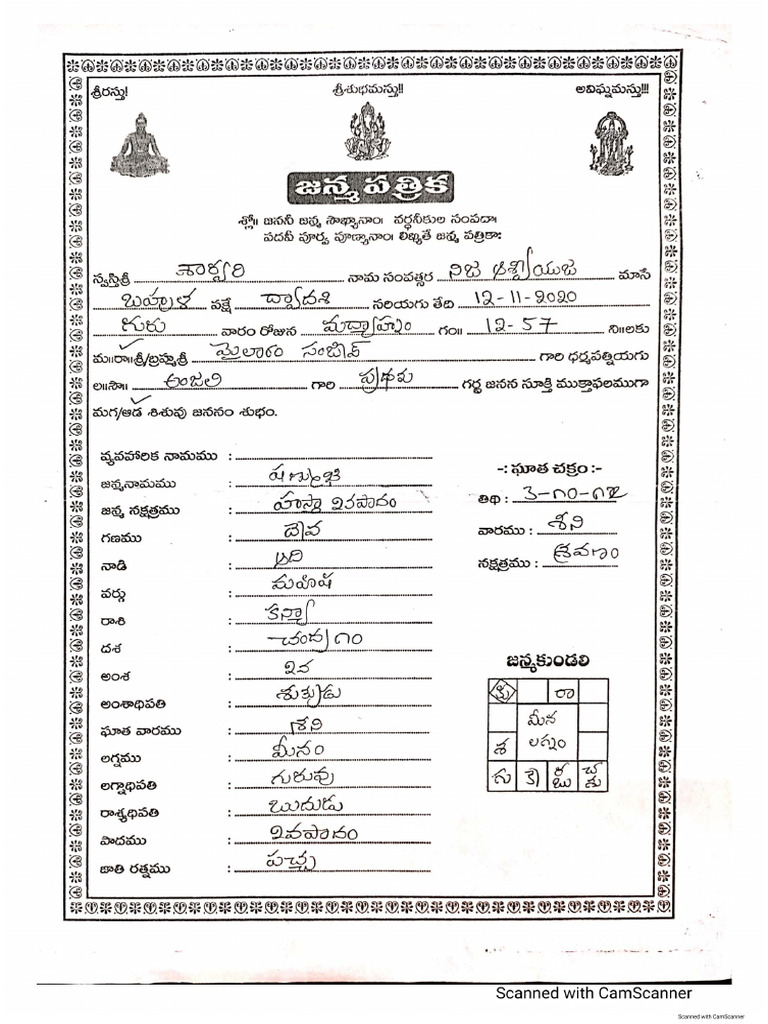 శ్రీరస్తు! శ్రీశుభమస్తు!! అవిఘ్నమస్తు!!!
జన్మ పత్రిక
శ్లో॥ జననీ జన్మ సౌఖ్యానాం। వర్ధనీకుల సంపదా।
పదవీ పూర్వ పుణ్యానాం। లిఖ్యతే జన్మ పత్రికా:
స్వస్తిశ్రీ శార్వరి నామ సంవత్సర నిజ ఆశ్వీయుజ మాసే
బహుళ పక్షే ద్వాదశి సరియగు తేది 12-11-2020
గురు వారం రోజున మధ్యాహ్నం గం॥ 12-57 ని॥లకు
మ॥రా॥శ్రీ/బ్రహ్మశ్రీ మైలారం సంజీవ్ గారి ధర్మపత్నియగు
ల॥సౌ॥ అంజలి గారి ప్రథమ గర్భ జనన సూక్తి ముక్తాఫలముగా
మగ/ఆడ శిశువు జననం శుభం.
వ్యవహారిక నామము :
జన్మనామము : షణ్ముఖి
జన్మ నక్షత్రము : హస్తా 2వపాదం
గణము : దేవ
నాడి : ఆది
వర్గు : మహిష
రాశి : కన్యా
దశ : చంద్ర
అంశ : 2వ
అంశాధిపతి : శుక్రుడు
ఘాత వారము : శని
లగ్నము : మీనం
లగ్నాధిపతి : గురువు
రాశ్యధిపతి : బుదుడు
పాదము : 2వపాదం
జాతి రత్నము : పచ్చ
-: ఘాత చక్రం :-
తిథి :
వారము : శని
నక్షత్రము : శ్రవణం
జన్మకుండలి
రా
మీన
లగ్నం
శ
గు కే ర బు చ శు
Scanned with CamScanner
Scanned with CamScanner